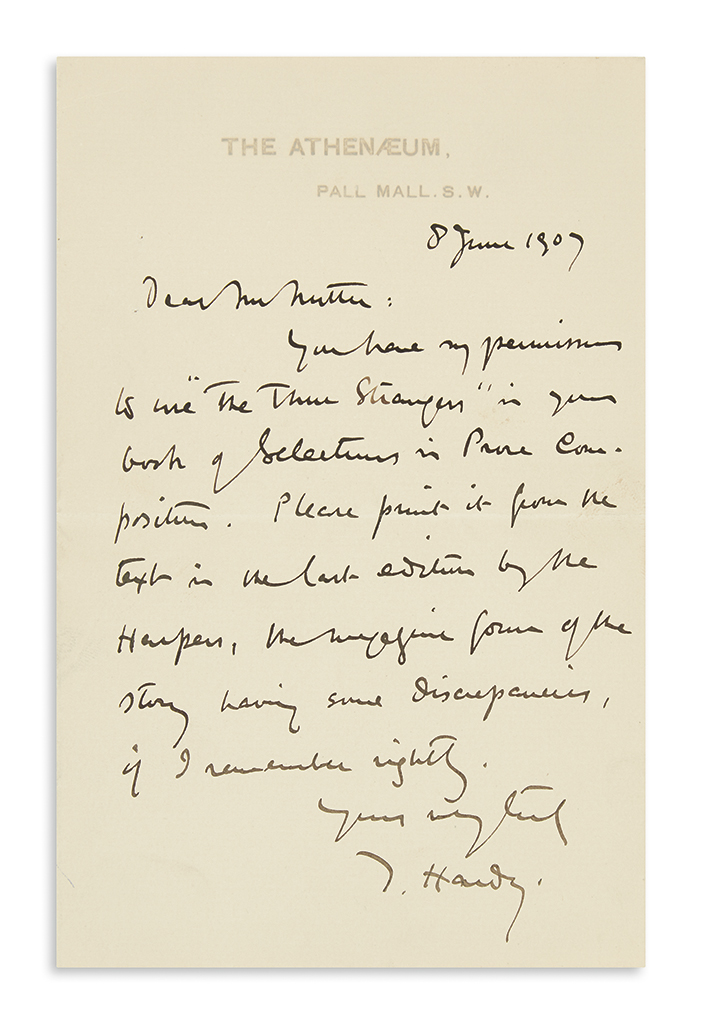 THE ATHENÆUM,
PALL MALL. S. W.
8 June 1907
Dear Mr Nutter:
You have my permission
to use "The Three Strangers" in your
book of Selections in Prose Com-
position. Please print it from the
text in the last edition by the
Harpers, the magazine form of the
story having some discrepancies,
if I remember rightly.
Yours very truly
T. Hardy.